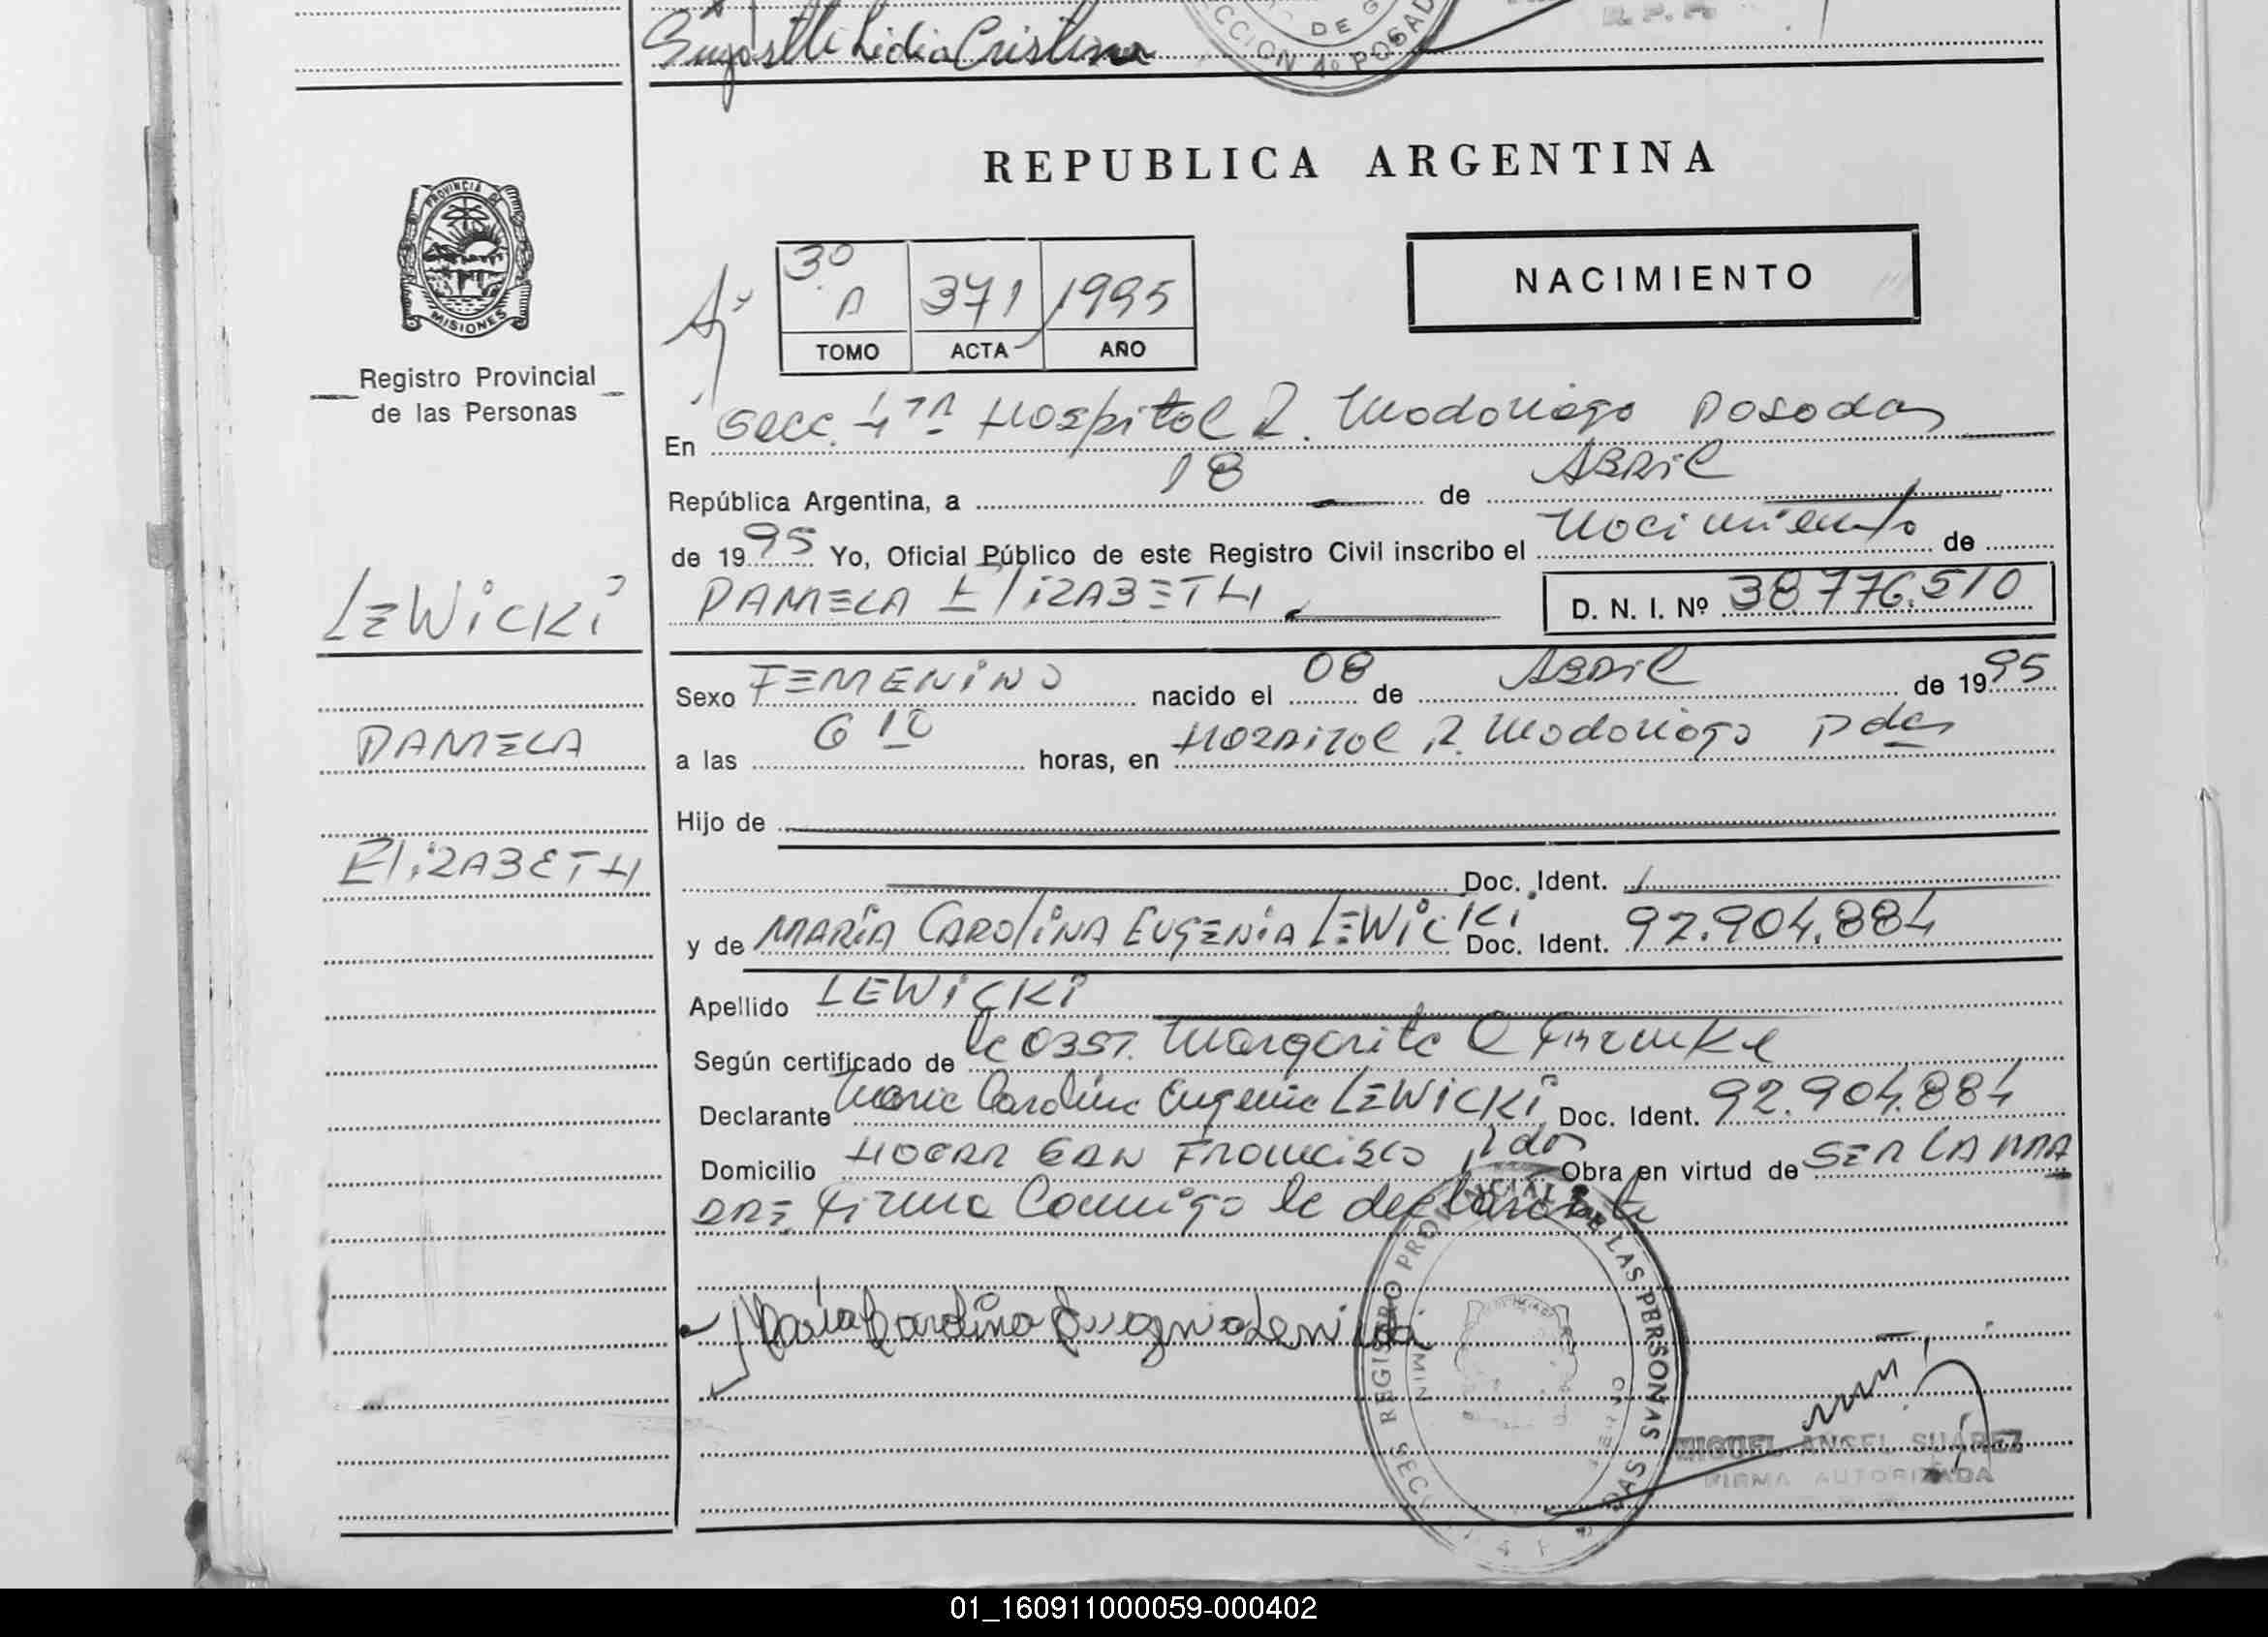 Lidia Cristina
DE
CCION 4º POSAD
REPUBLICA ARGENTINA
PROVINCIA DE
MISIONES
Registro Provincial
de las Personas
3º
A 371 1995
TOMO ACTA AÑO
NACIMIENTO
En Secc. 4ta Hospital R. Madariaga Posadas
República Argentina, a 18 de Abril
de 1995 Yo, Oficial Público de este Registro Civil inscribo el Nacimiento de
PAMELA ELIZABETH D. N. I. Nº 38.776.510
LEWICKI
PAMELA
ELIZABETH
Sexo FEMENINO nacido el 08 de Abril de 1995
a las 6 10 horas, en Hospital R. Madariaga Pdas
Hijo de
Doc. Ident.
y de MARIA CAROLINA EUGENIA LEWICKI Doc. Ident. 92.904.884
Apellido LEWICKI
Según certificado de la Obst. Margarita
Declarante Maria Carolina Eugenia LEWICKI Doc. Ident. 92.904.884
Domicilio HOGAR SAN FRANCISCO Pdas Obra en virtud de SER LA MA
DRE Firma Conmigo la declarante
Maria Carolina Eugenia Lewicki
REGISTRO PROVINCIAL DE LAS PERSONAS
MIGUEL ANGEL SUÁREZ
FIRMA AUTORIZADA
01_160911000059-000402